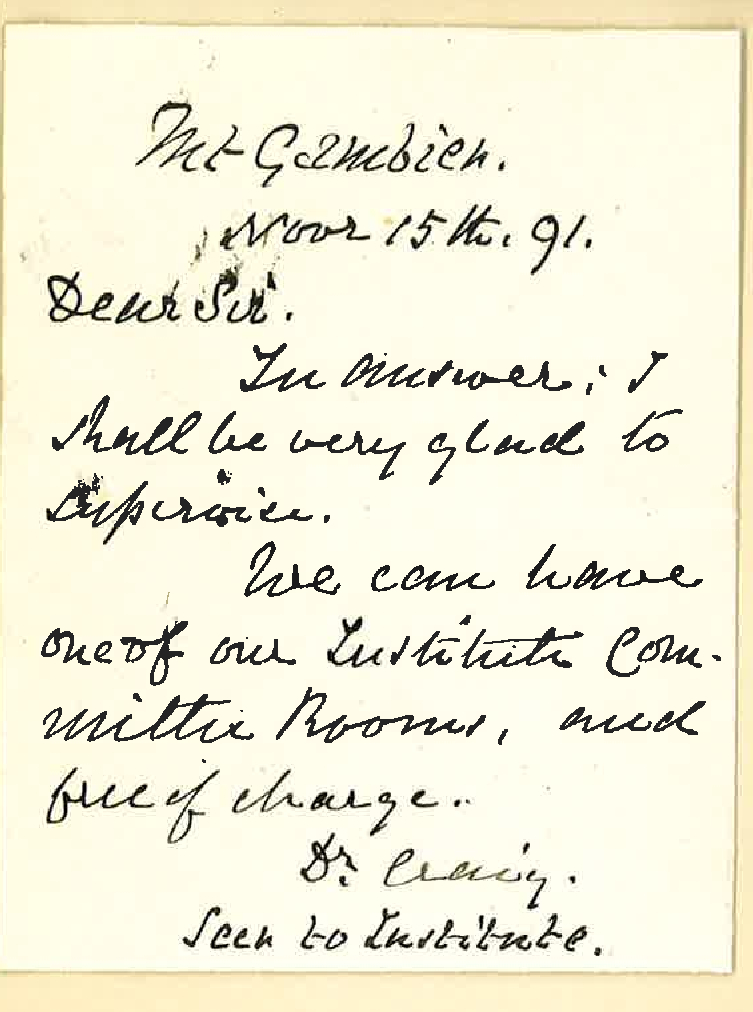 Mt Gambier.
Novr 15th. 91.
Dear Sir.
In answer; I
shall be very glad to
supervise.
We can have
one of our Institute Com-
mittee Rooms, and
free of charge.
Dr. Craig.
Secr to Institute.